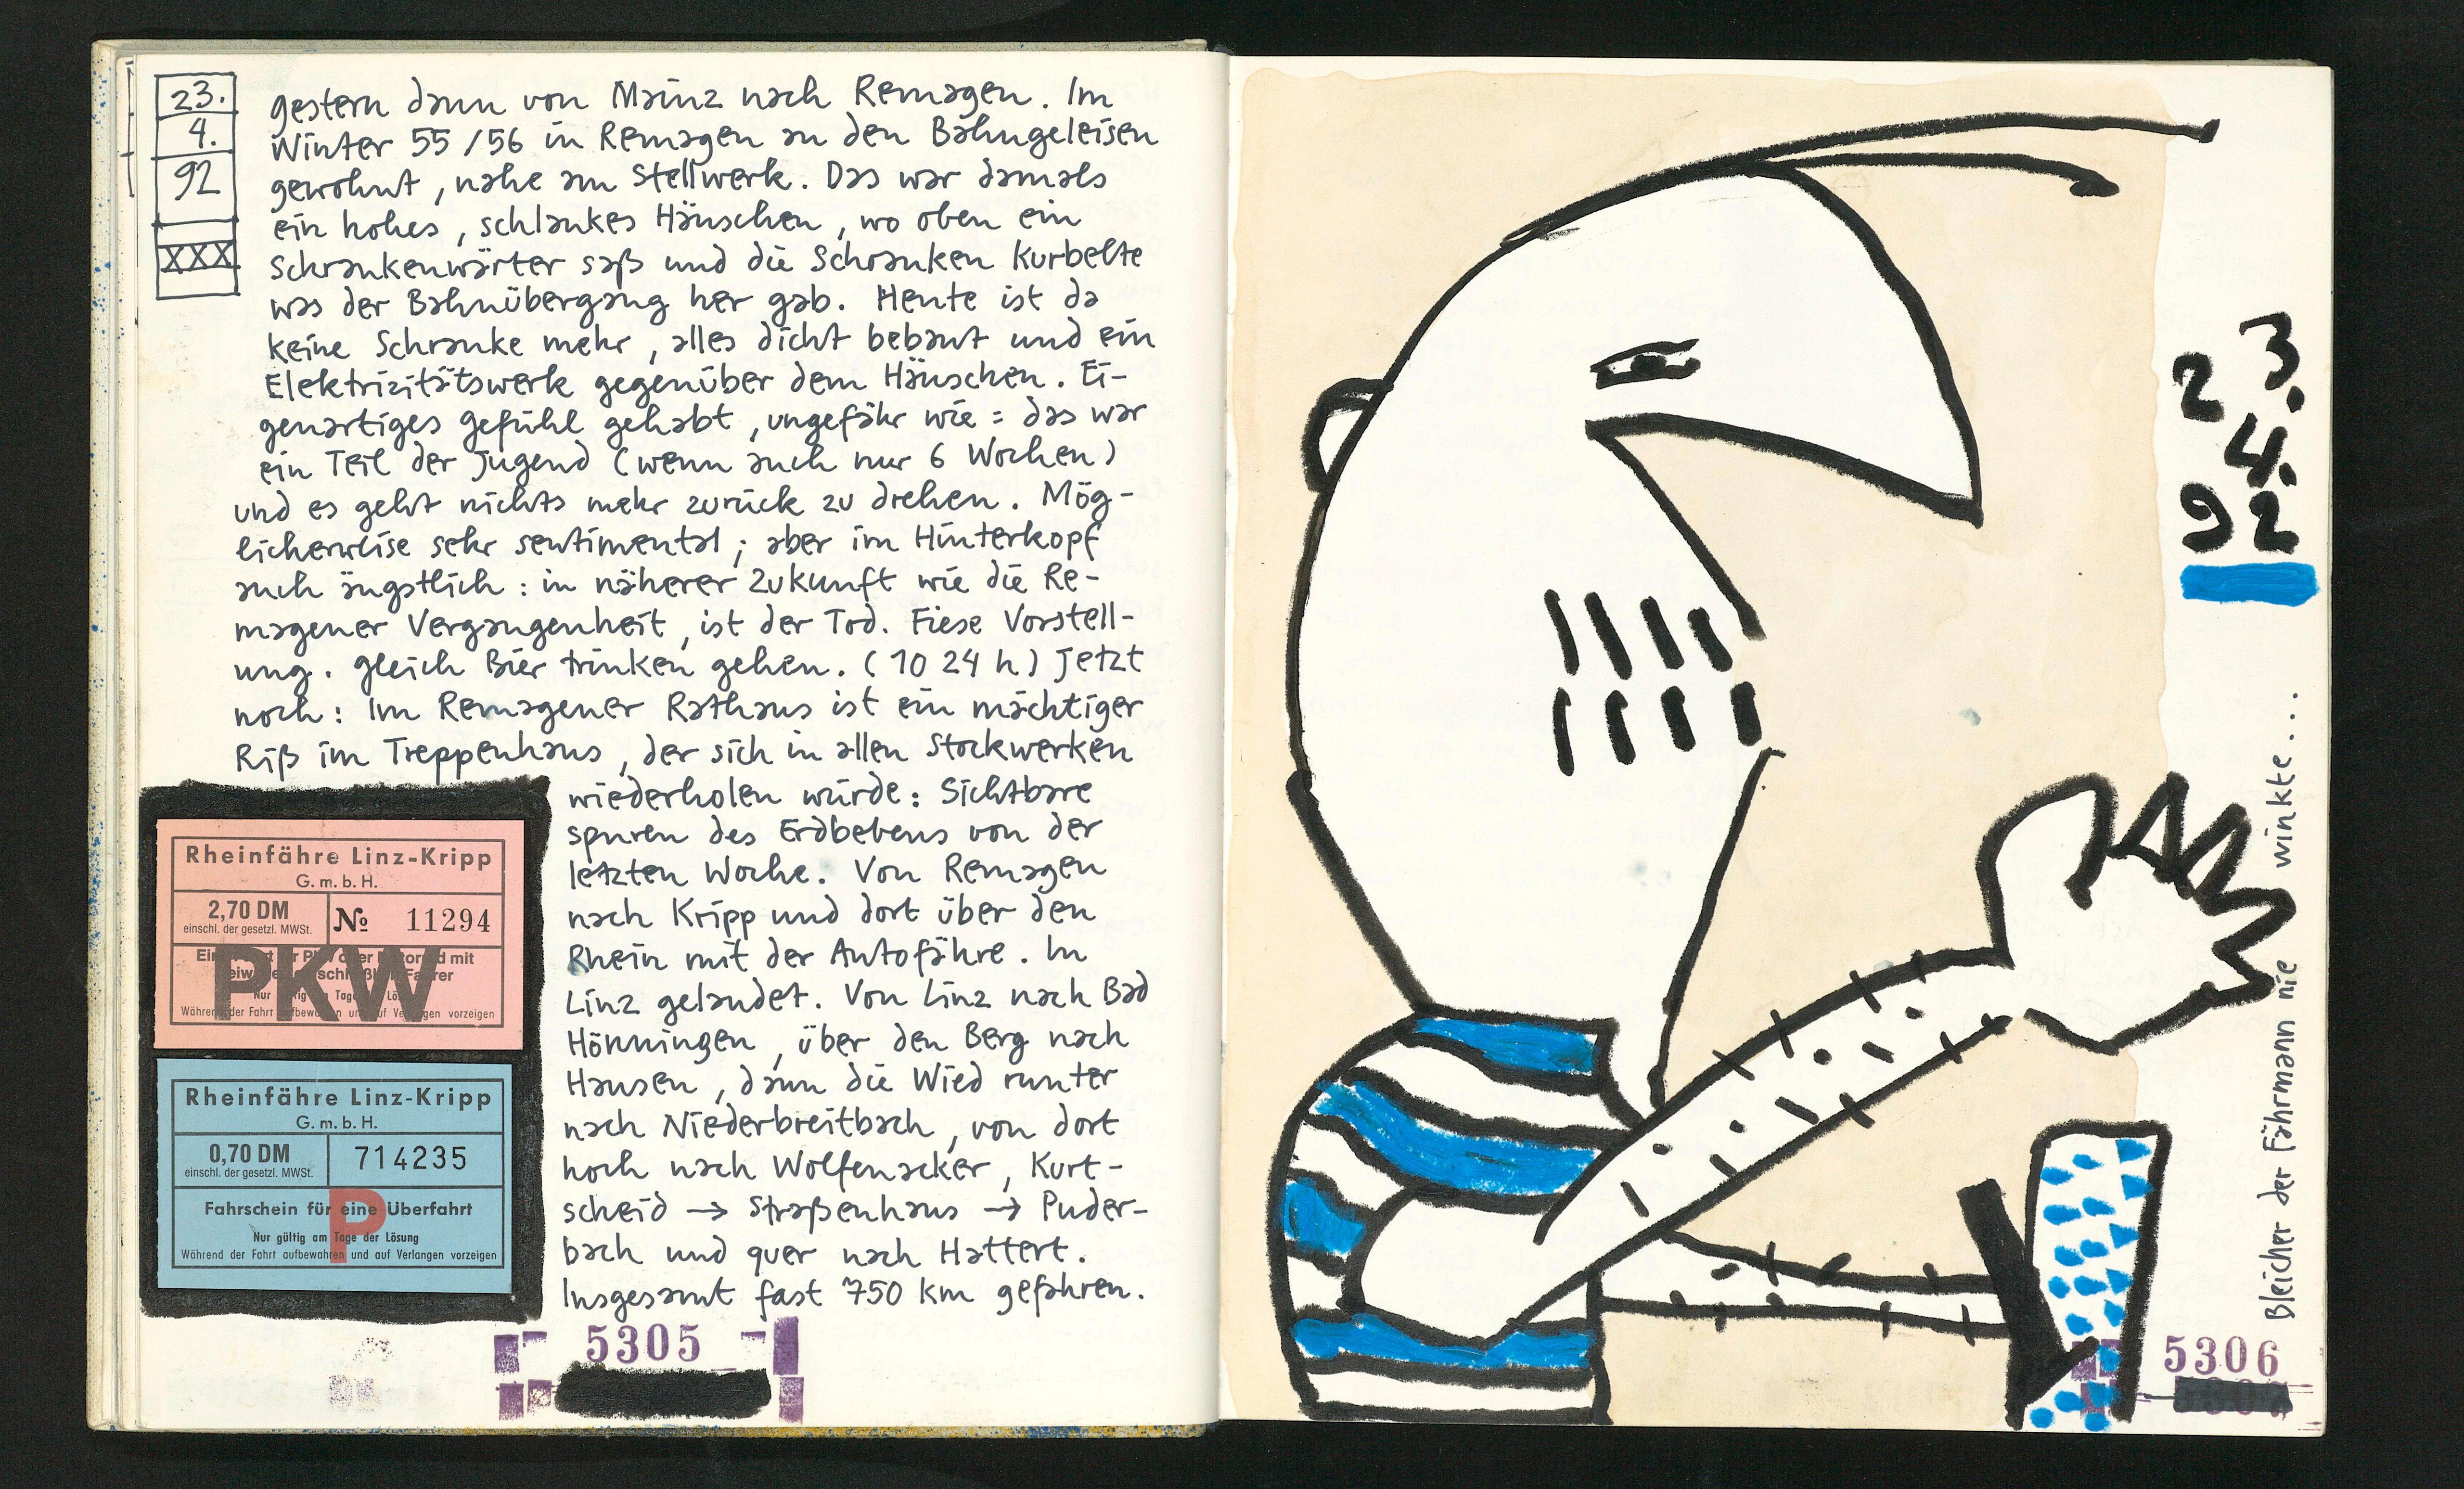 23.
4.
92
XXX
gestern dann von Mainz nach Remagen. Im
Winter 55/56 in Remagen an den Bahngeleisen
gewohnt, nahe am Stellwerk. Das war damals
ein hohes, schlankes Häuschen, wo oben ein
Schrankenwärter saß und die Schranken kurbelte
was der Bahnübergang her gab. Heute ist da
keine Schranke mehr, alles dicht bebaut und ein
Elektrizitätswerk gegenüber dem Häuschen. Ei-
genartiges Gefühl gehabt, ungefähr wie: das war
ein Teil der Jugend (wenn auch nur 6 Wochen)
und es geht nichts mehr zurück zu drehen. Mög-
licherweise sehr sentimental; aber im Hinterkopf
auch ängstlich: in näherer Zukunft wie die Re-
magener Vergangenheit, ist der Tod. Fiese Vorstell-
ung. Gleich Bier trinken gehen. (10 24 h) Jetzt
noch: Im Remagener Rathaus ist ein mächtiger
Riß im Treppenhaus, der sich in allen Stockwerken
wiederholen würde: Sichtbare
Spuren des Erdbebens von der
letzten Woche. Von Remagen
nach Kripp und dort über den
Rhein mit der Autofähre. In
Linz gelandet. Von Linz nach Bad
Hönningen, über den Berg nach
Hausen, dann die Wied runter
nach Niederbreitbach, von dort
hoch nach Wolfenacker, Kurt-
scheid → Straßenhaus → Puder-
bach und quer nach Hattert.
Insgesamt fast 750 km gefahren.
Rheinfähre Linz-Kripp
G. m. b. H.
2,70 DM
einschl. der gesetzl. MWSt.
№ 11294
PKW
mit
Fahrer
Während der Fahrt aufbewahren und auf Verlangen vorzeigen
Rheinfähre Linz-Kripp
G. m. b. H.
0,70 DM
einschl. der gesetzl. MWSt.
714235
P
Fahrschein für eine Überfahrt
Nur gültig am Tage der Lösung
Während der Fahrt aufbewahren und auf Verlangen vorzeigen
5305
23.
4.
92
Bleicher der Fährmann nie winkte...
5306